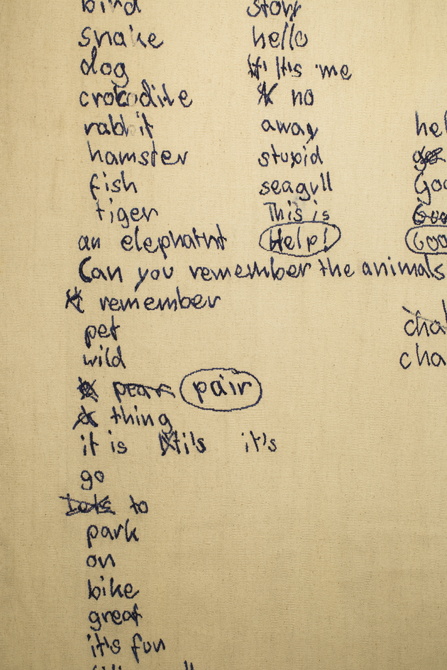 bird
snake
dog
crocodile
rabbit
hamster
fish
tiger
an elephatnt
Can you remember the animals
remember
pet
wild
pear pair
thing
it is it's it's
go
Lets to
park
on
bike
great
it's fun
story
hello
It's me
no
away
stupid
seagull
This is
Help!
hel
Goo
Goo
cha
cha